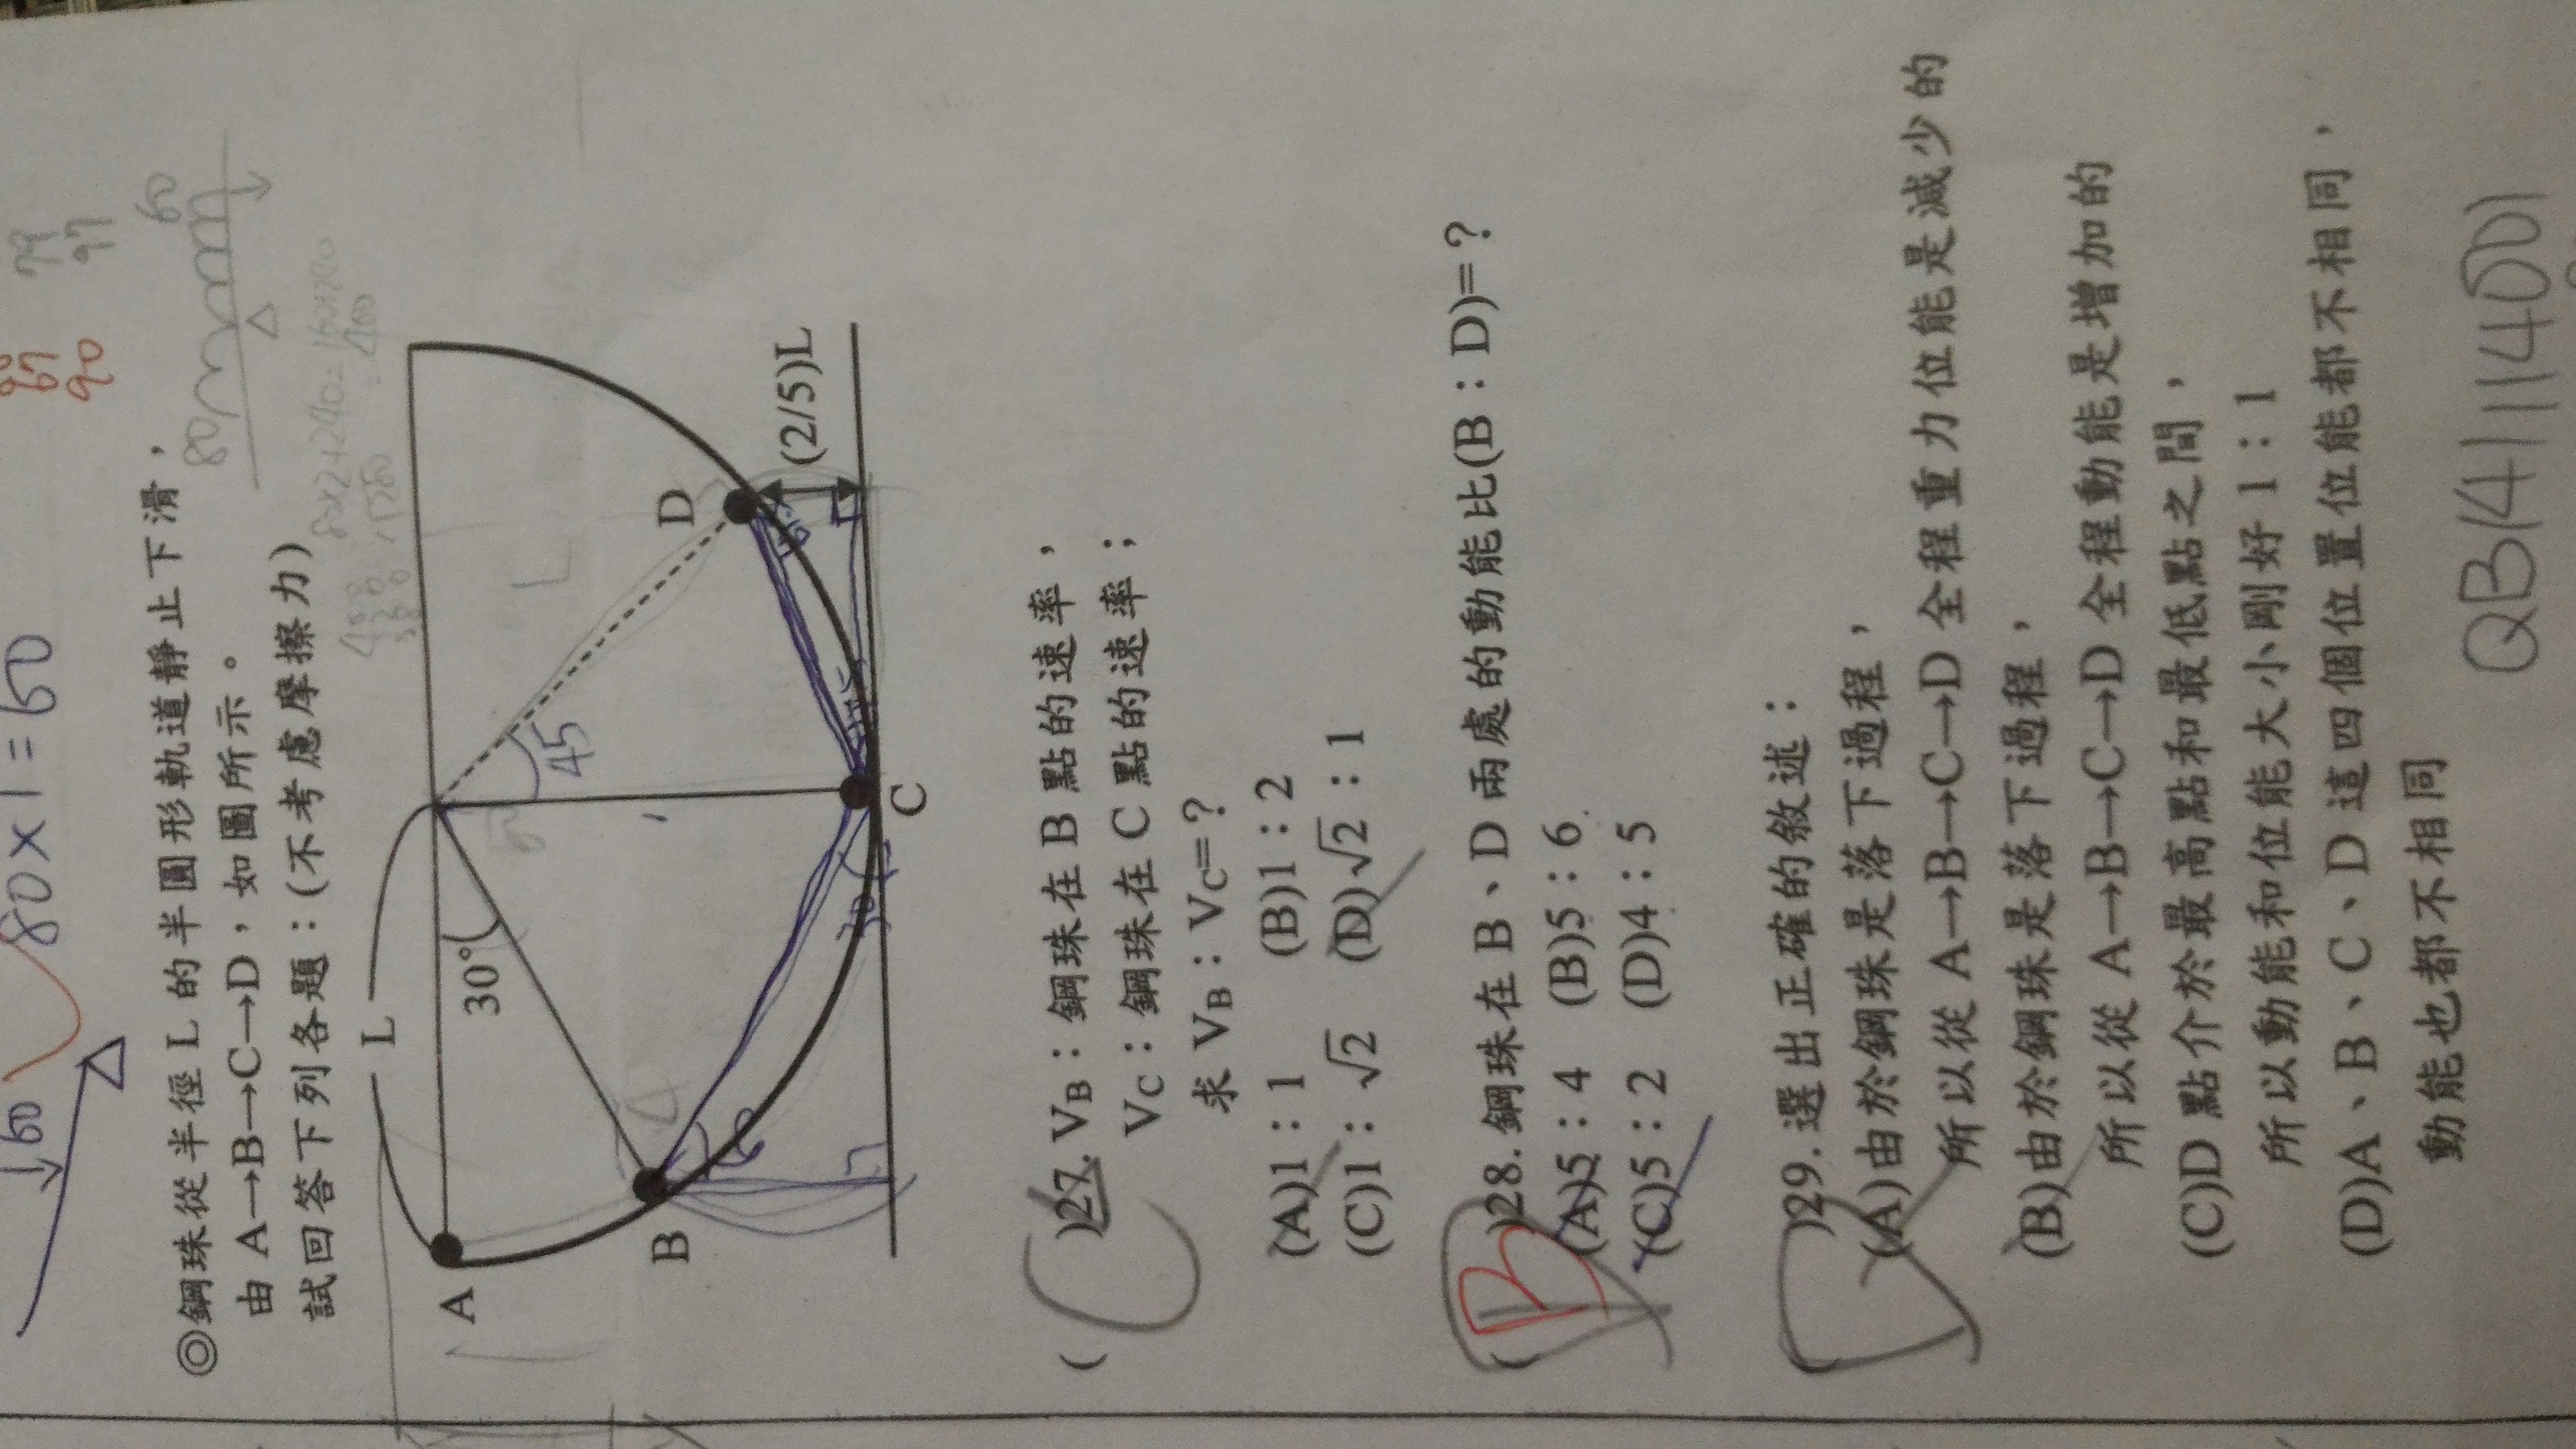 80×1=60
60
67
90
79
97
80
60
◎鋼珠從半徑 L 的半圓形軌道靜止下滑，
由 A→B→C→D，如圖所示。
試回答下列各題：(不考慮摩擦力)
L
A
30°
45
L
B
D
(2/5)L
C
( C )27. VB：鋼珠在 B 點的速率，
VC：鋼珠在 C 點的速率；
求 VB：VC=？
(A)1：1 (B)1：2
(C)1：√2 (D)√2：1
( B )28. 鋼珠在 B、D 兩處的動能比(B：D)=？
(A)5：4 (B)5：6
(C)5：2 (D)4：5
( D )29. 選出正確的敘述：
(A)由於鋼珠是落下過程，
所以從 A→B→C→D 全程重力位能是減少的
(B)由於鋼珠是落下過程，
所以從 A→B→C→D 全程動能是增加的
(C)D 點介於最高點和最低點之間，
所以動能和位能大小剛好 1：1
(D)A、B、C、D 這四個位置位能都不相同，
動能也都不相同